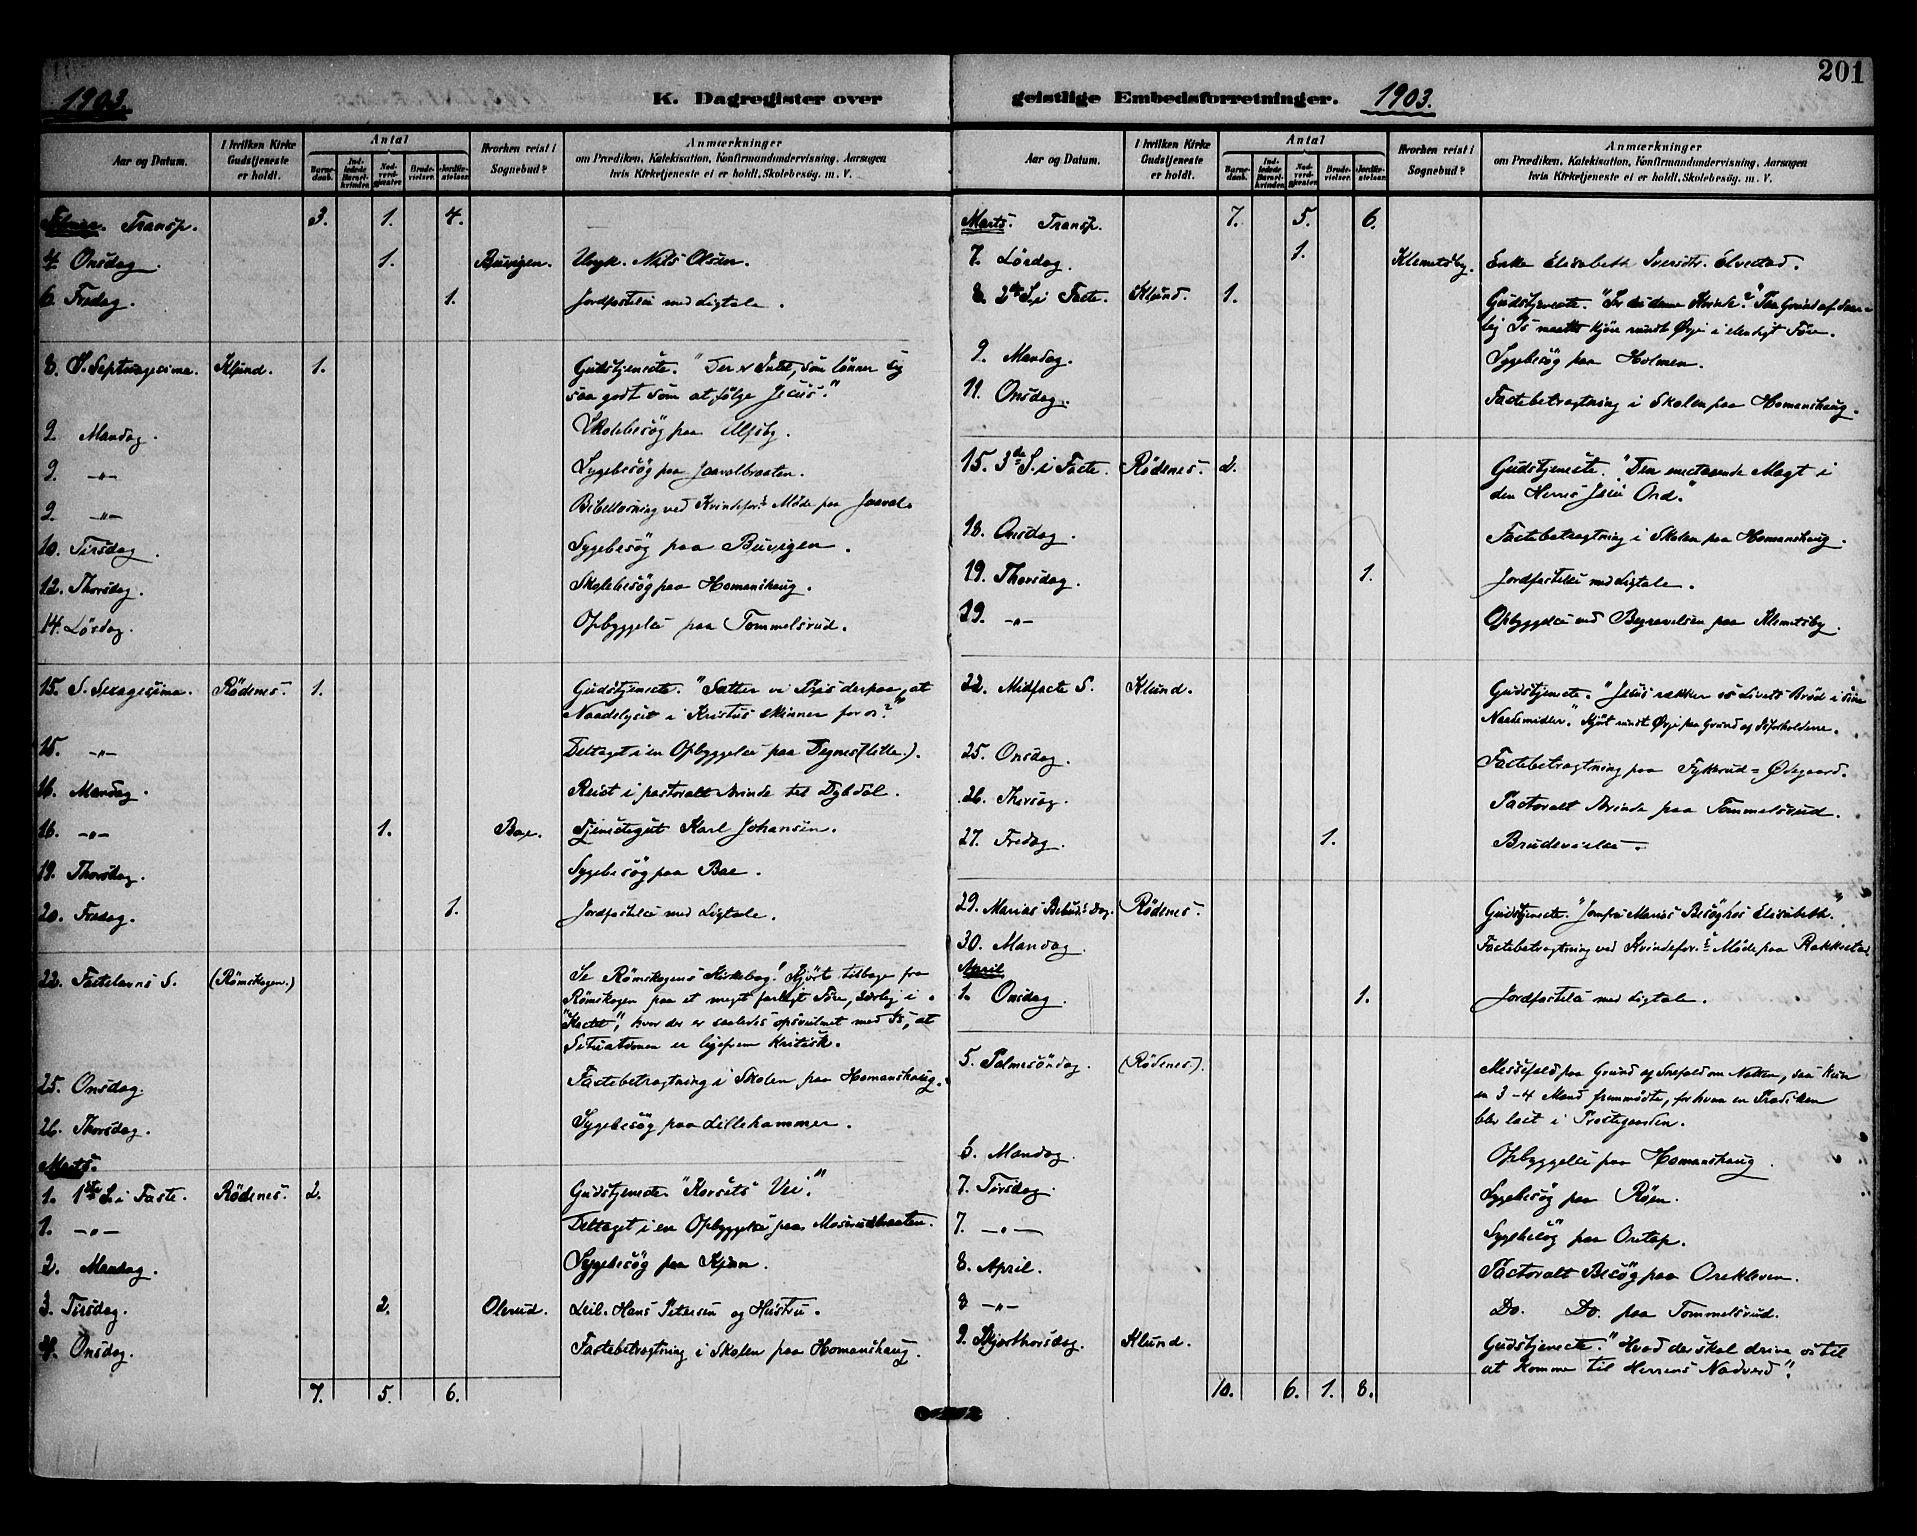 1903.
K. Dagregister over
Aar og Datum.
I hvilken Kirke Gudstjeneste er holdt.
Antal
Barnedaab.
Indledede Barselkvinder
Nadverdgjæster
Brudevielser.
Jordfæstelser.
Hvorhen reist i Sognebud?
Anmærkninger
om Prædiken, Katekisation, Konfirmandundervisning, Aarsagen
hvis Kirketjeneste ei er holdt, Skolebesøg, m. V.
Transp. 3. 1. 4.
4. Onsdag. 1. Buvigen. Nils Olsen.
6. Fredag. 1. Jordfæstelse med Ligtale.
8. S. Septuagesima. Klund. 1. Gudstjeneste. "Der er Intet, som lønner sig
saa godt som at følge Jesus."
9. Mandag. Skolebesøg paa
9. -"- Sygebesøg paa Jaavalbraaten.
9. -"- Bibellæsning ved Kvindefor.s Møde paa Jaaval.
10. Tirsdag. Sygebesøg paa Buvigen.
12. Thorsdag. Skolebesøg paa Homanshaug.
14. Lørdag. Opbyggelse paa Tommelsrud.
15. S. Sexagesima. Rødenes. 1. Gudstjeneste. "Sætter vi Pris derpaa, at
Naadelyset i Kristus skinner for os?"
15. -"- Deltaget i en Opbyggelse paa
16. Mandag. Reist i pastoralt Ærinde til Dybdal.
16. -"- 1. Boe. Tjenestegut Karl Johansen.
19. Thorsdag. Sygebesøg paa Boe.
20. Fredag. 1. Jordfæstelse med Ligtale.
22. Fastelavns S. (Rømskogen.) Se Rømskogens Kirkebog! Kjørt tilbage fra
Rømskogen paa et meget farligt Føre, særlig i
hvor der er saaledes opsvulmet med Is, at
Situationen er ligefrem kritisk.
25. Onsdag. Fastebetragtning i Skolen paa Homanshaug.
26. Thorsdag. Sygebesøg paa Lillehammer.
Marts.
1. 1ste S. i Faste. Rødenes. 2. Gudstjeneste. "Korsets Vei."
1. -"- Deltaget i en Opbyggelse paa Moserudbraaten.
2. Mandag. Sygebesøg paa
3. Tirsdag. 2. Olerud. Hans Petersen og Hustru.
4. Onsdag. Fastebetragtning i Skolen paa Homanshaug.
7. 5. 6.
201
geistlige Embedsforretninger. 1903.
Aar og Datum.
I hvilken Kirke Gudstjeneste er holdt.
Antal
Barnedaab.
Indledede Barselkvinder
Nadverdgjæster
Brudevielser.
Jordfæstelser.
Hvorhen reist i Sognebud?
Anmærkninger
om Prædiken, Katekisation, Konfirmandundervisning, Aarsagen
hvis Kirketjeneste ei er holdt, Skolebesøg, m. V.
Marts. Transp. 7. 5. 6.
7. Lørdag. 1. Klemetsby. Enke Elisabeth Iversdtr. Elvestad.
8. 2den S. i Faste. Klund. 1. Gudstjeneste. Paa Grund af
Is maatte kjøre rundt Ørje i elendigt Føre.
9. Mandag. Sygebesøg paa Holmen.
11. Onsdag. Fastebetragtning i Skolen paa Homanshaug.
15. 3de S. i Faste. Rødenes. 2. Gudstjeneste. "Den enestaaende Magt i
den Herres Jesu Ord."
18. Onsdag. Fastebetragtning i Skolen paa Homanshaug.
19. Thorsdag. 1. Jordfæstelse med Ligtale.
19. -"- Opbyggelse ved Begravelsen paa Klemetsby.
22. Midfaste S. Klund. Gudstjeneste. "Jesus rækker os Livets Brød i sine
Naademidler." Kjørt rundt Ørje paa Grund af Isforholdene.
25. Onsdag. Fastebetragtning paa Fykerud-Ødegaard.
26. Thorsdag. Pastoralt Ærinde paa Tommelsrud.
27. Fredag. 1. Brudevielse.
29. Marias Beb.s Dag. Rødenes. Gudstjeneste. "Jomfru Marias Besøg hos Elisabeth."
30. Mandag. Fastebetragtning ved Kvindefor.s Møde paa Rakkestad
April
1. Onsdag. 1. Jordfæstelse med Ligtale.
5. Palmesøndag. (Rødenes.) Messefald paa Grund af Snefald om Natten, saa kun
en 3-4 Mand fremmødte, for hvem en Prædiken
blev læst i Præstegaarden.
6. Mandag. Opbyggelse paa Homanshaug.
7. Tirsdag. Sygebesøg paa Røen.
7. -"- Sygebesøg paa
8. April. Pastoralt Besøg paa Orekleven.
8 -"- Do. Do. paa Tommelsrud.
9. Skjærthorsdag. Klund. Gudstjeneste. "Hvad der skal drive os til
at komme til Herrens Nadverd".
10. 6. 1. 8.